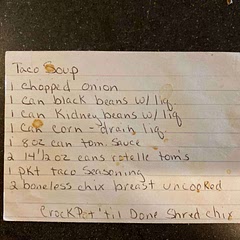 Taco Soup
1 chopped onion
1 can black beans w/ liq.
1 can Kidney beans w/ liq
1 can corn - drain liq.
1 8oz can tom. sauce
2 14 1/2 oz cans rotelle tom's
1 pkt taco seasoning
2 boneless chix breast uncooked
CrockPot 'til Done Shred chix